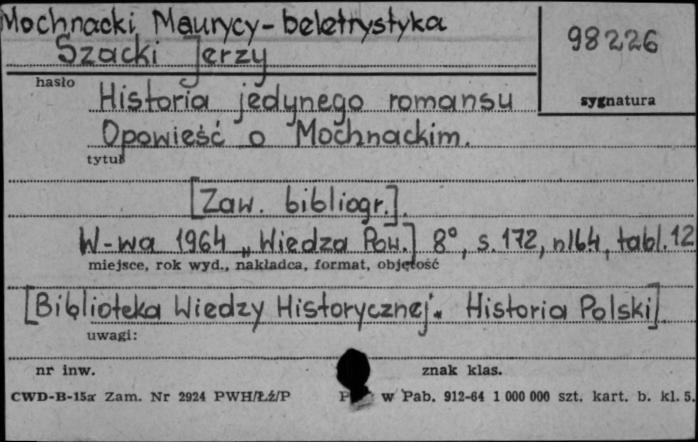 Mochnacki Maurycy - beletrystyka
Szacki Jerzy
98226
hasło
sygnatura
Historia jedynego romansu
Opowieść o Mochnackim.
tytuł
[Zaw. bibliogr.].
W-wa 1964 „Wiedza Pow.] 8°, s. 172, nlb4, tabl. 12
miejsce, rok wyd., nakładca, format, objętość
[Biblioteka Wiedzy Historycznej. Historia Polski]
uwagi:
nr inw.
znak klas.
CWD-B-15a Zam. Nr 2924 PWH/Łź/P
w Pab. 912-64 1 000 000 szt. kart. b. kl. 5.